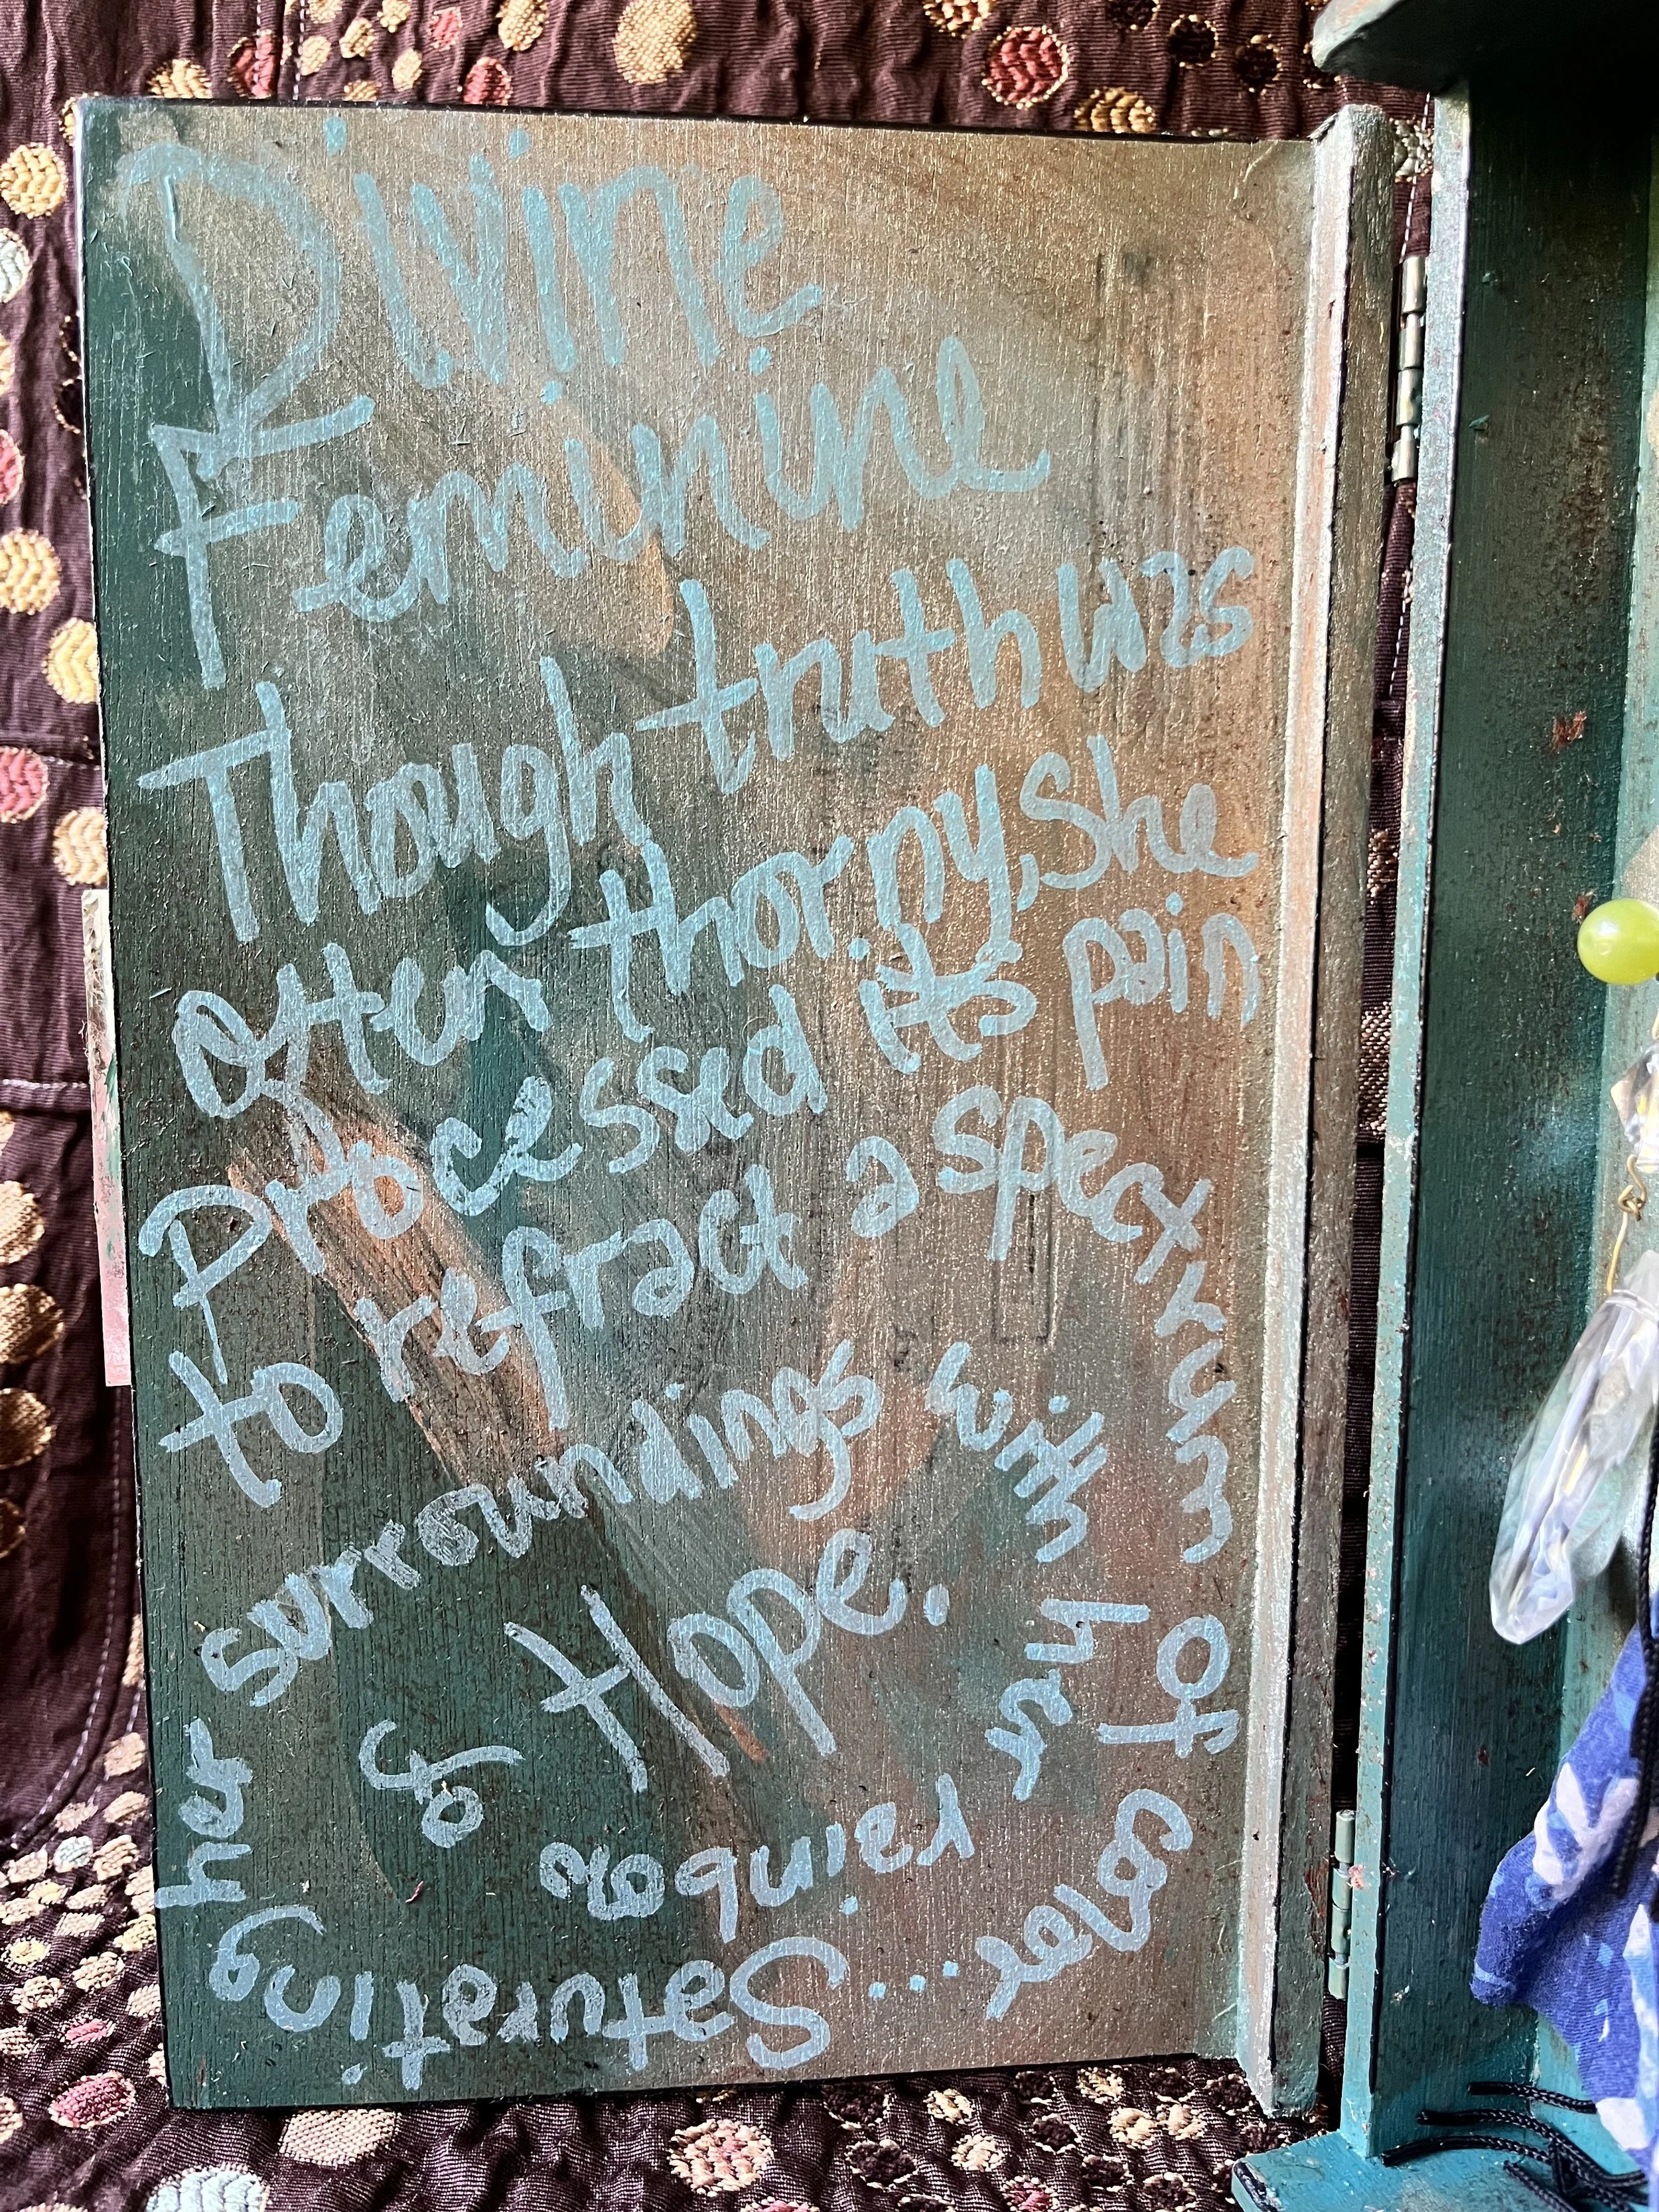 Divine
Feminine
Though truth was
often thorny, she
processed its pain
to refract a spectrum of color
... Saturating her surroundings with her rainbow of Hope.